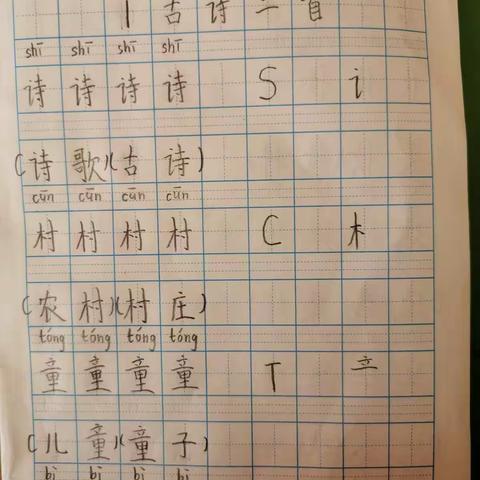 1 古诗二首
shī shī shī shī
诗 诗 诗 诗 S 讠
(诗歌)(古诗)
cūn cūn cūn cūn
村 村 村 村 C 木
(农村)(村庄)
tóng tóng tóng tóng
童 童 童 童 T 立
(儿童)(童子)